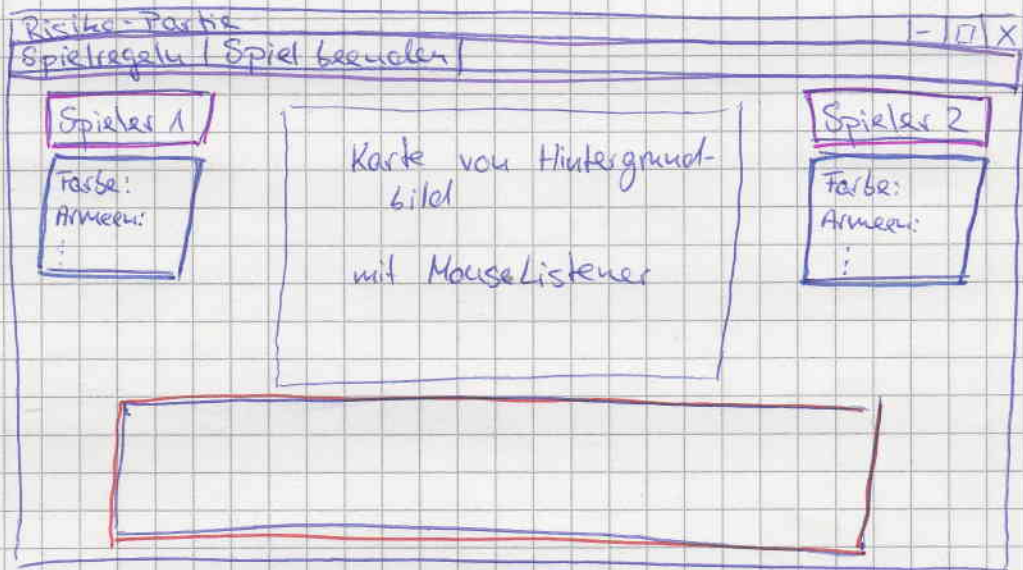 Risiko-Partie
- □ X
Spielregeln | Spiel beenden |
Spieler 1
Spieler 2
Karte von Hintergrund-
bild
mit MouseListener
Farbe:
Armeen:
⋮
Farbe:
Armeen:
⋮